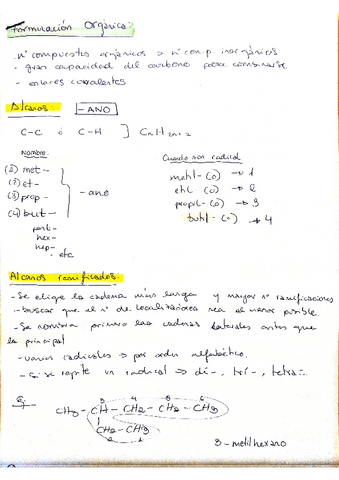 Formulación Orgánica:
- nº compuestos orgánicos > nº comp. inorgánicos
- gran capacidad del carbono para combinarse
- enlaces covalentes
Alcanos: - ANO
C-C ó C-H ] CnH2n+2
Nombre:
(1) met-
(2) et-
(3) prop-
(4) but-
pent-
hex-
hep-
etc
- ano
Cuando son radical
metil-(o) → 1
etil-(o) → 2
propil-(o) → 3
butil-(o) → 4
Alcanos ramificados:
- Se elige la cadena más larga y mayor nº ramificaciones
- buscar que el nº de localizadores sea el menor posible.
- Se nombra primero las cadenas laterales antes que
la principal
- varios radicales → por orden alfabético.
- si se repite un radical → di-, tri-, tetra-.
Ej
3 4 5 6
CH3 - CH - CH2 - CH2 - CH3
CH2 - CH3
2 1
3 - metilhexano